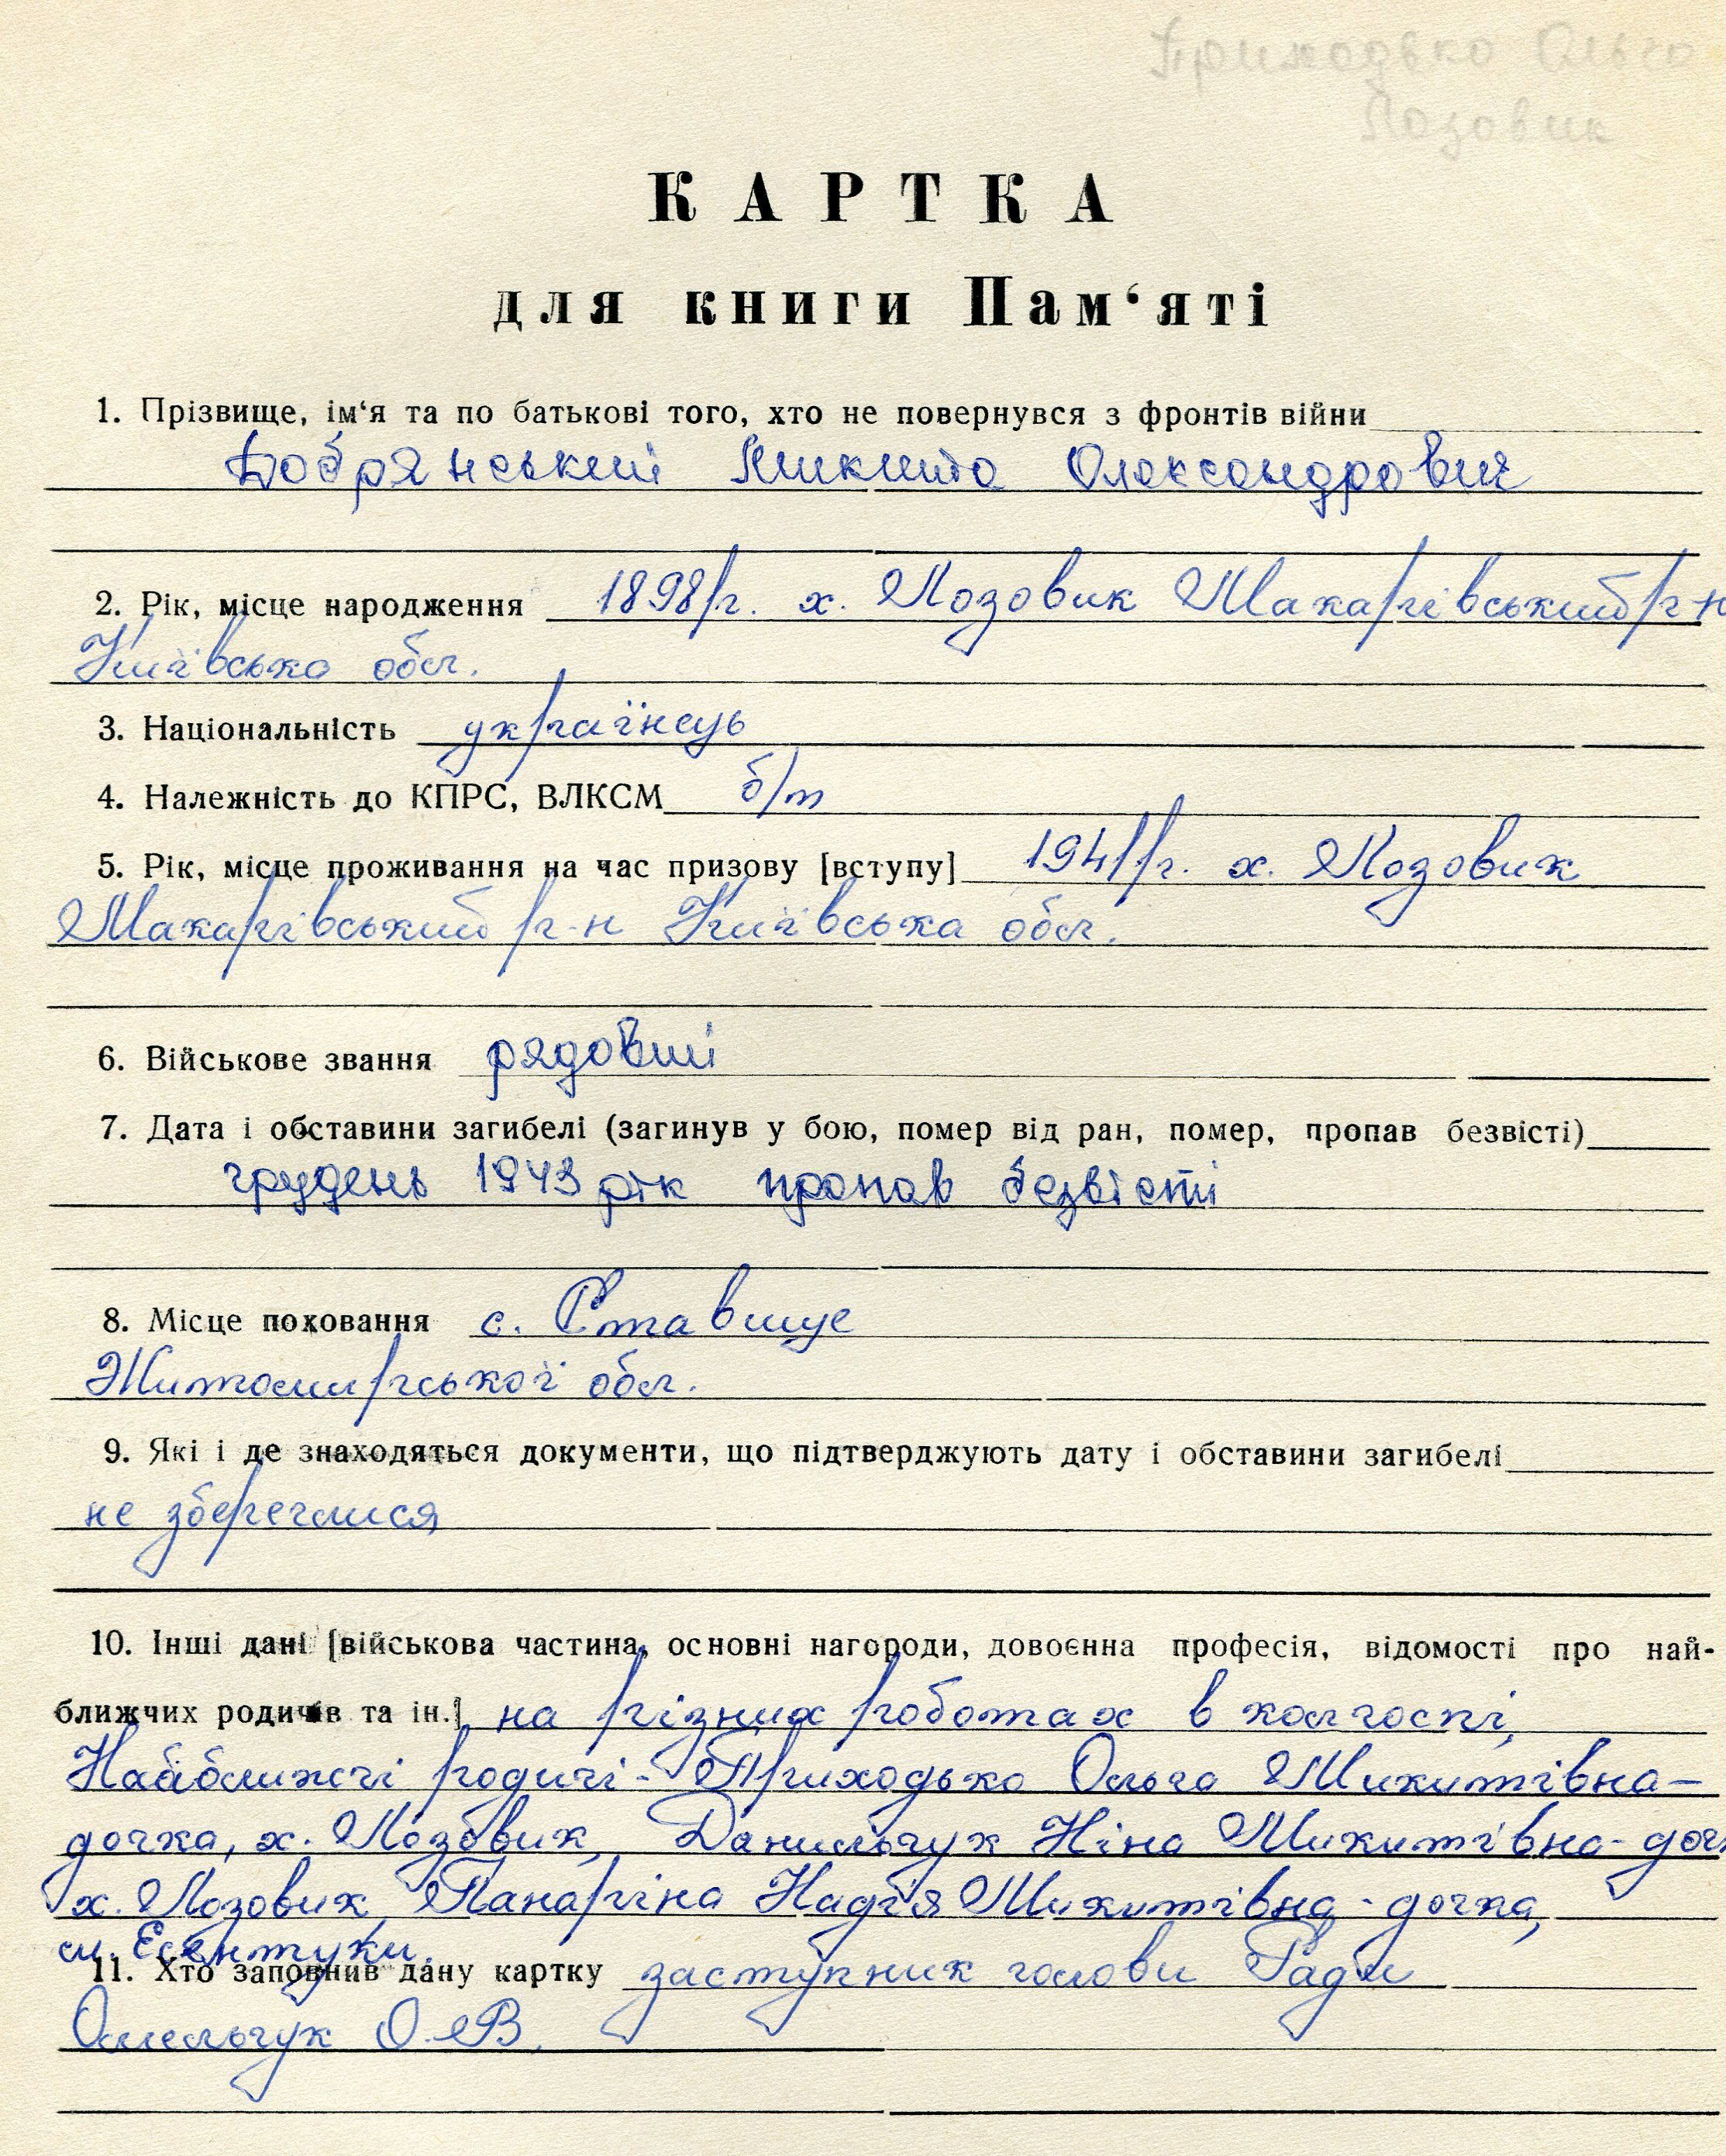 Приходько Ольга
Лозовик
КАРТКА
для книги Пам‘яті
1. Прізвище, ім‘я та по батькові того, хто не повернувся з фронтів війни
Добрянський Микита Олександрович
2. Рік, місце народження 1898 р. х. Лозовик Макарівський р-н
Київська обл.
3. Національність українець
4. Належність до КПРС, ВЛКСМ б/п
5. Рік, місце проживання на час призову [вступу] 1941 р. х. Лозовик
Макарівський р-н Київська обл.
6. Військове звання рядовий
7. Дата і обставини загибелі (загинув у бою, помер від ран, помер, пропав безвісті)
грудень 1943 рік пропав безвісті
8. Місце поховання с. Ставище
Житомирської обл.
9. Які і де знаходяться документи, що підтверджують дату і обставини загибелі
не збереглися
10. Інші дані [військова частина, основні нагороди, довоєнна професія, відомості про най-
ближчих родичів та ін.] на різних роботах в колгоспі,
Найближчі родичі - Приходько Ольга Микитівна –
дочка, х. Лозовик, Данильчук Ніна Микитівна - доч
х. Лозовик, Панаріна Надія Микитівна - дочка,
м. Есентуки.
11. Хто заповнив дану картку заступник голови Ради
Омельчук О. В.